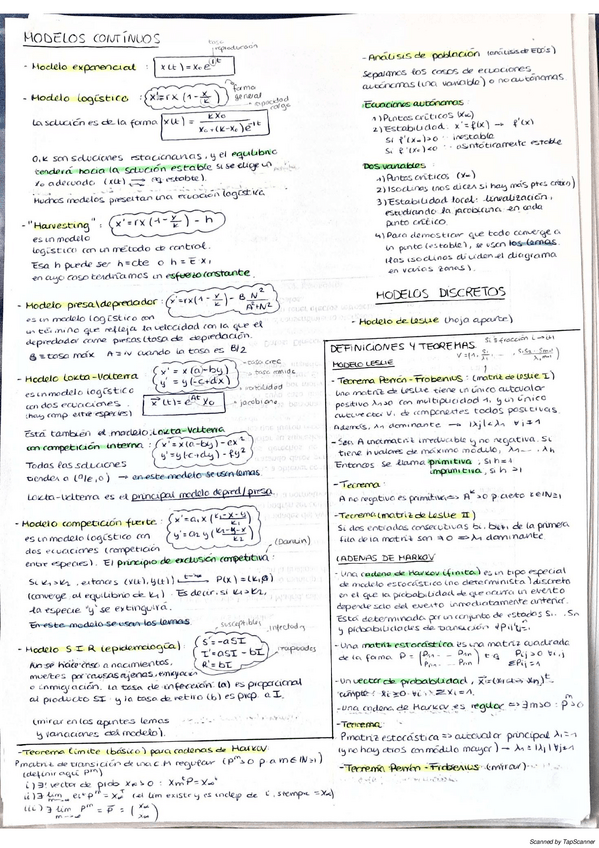 MODELOS CONTÍNUOS
tasa reproducción
- Modelo exponencial : x(t) = x₀ e^{rt}
- Modelo logístico : x' = r x (1 - x/K) forma general
capacidad carga
La solución es de la forma x(t) = K x₀ / (x₀ + (K - x₀) e^{-rt})
0, K son soluciones estacionarias, y el equilibrio
tenderá hacia la solución estable si se elige un
x₀ adecuado (x(t) → eq estable).
Muchos modelos presentan una ecuación logística
- "Harvesting" : x' = r x (1 - x/K) - h
es un modelo
logístico con un método de control.
Esa h puede ser h = cte o h = E x,
en cuyo caso tendríamos un esfuerzo constante.
- Modelo presa/depredador : x' = r x (1 - x/K) - B N²/(A² + N²)
es un modelo logístico con
un término que refleja la velocidad con la que el
depredador come presas (tasa de depredación.
B = tasa máx A = N cuando la tasa es B/2
- Modelo Lotka-Volterra x' = x(a - by)
y' = y(-c + dx)
es un modelo logístico
con dos ecuaciones.
(hay comp entre especies)
jacobiana
Está también el modelo Lotka-Volterra
con competición interna : x' = x(a - by) - ex²
y' = y(-c + dy) - fy²
Todas las soluciones
tienden a (a/e, 0) → en este modelo se usan lemas
Lotka-Volterra es el principal modelo depred/presa.
- Modelo competición fuerte :
es un modelo logístico con
dos ecuaciones (competición
entre especies). El principio de exclusión competitiva (Darwin)
Si K₁ > K₂, entonces (x(t), y(t)) → P(x) = (K₁, 0)
(converge al equilibrio de K₁). Es decir, si K₁ > K₂,
la especie 'y' se extinguirá.
En este modelo se usan los lemas
susceptibles infectados
- Modelo S I R (epidemiología) : S' = -aSI
I' = aSI - bI
R' = bI
No se hace caso a nacimientos,
muertes por causas ajenas, emigración
o inmigración. la tasa de infección (a) es proporcional
al producto SI y la tasa de retiro (b) es prop. a I.
(mirar en los apuntes lemas
y variaciones del modelo).
- Teorema límite (básico) para cadenas de Markov
P matriz de transición de una C M regular (P^m > 0 p a m ∈ N ≥ 1)
(definir aquí P^m)
i) ∃! vector de prob x∞ > 0 : x∞ᵗ P = x∞ᵗ
- Análisis de población (análisis de EDOs)
Separamos los casos de ecuaciones
autónomas (una variable) o no autónomas
Ecuaciones autónomas :
1) Puntos críticos (x∞)
2) Estabilidad : x' = f(x) → f'(x)
Si f'(x∞) > 0 : inestable
Si f'(x∞) < 0 : asintóticamente estable
Dos variables
1) Puntos críticos (x∞)
2) Isoclinas (nos dices si hay más ptos crítico)
3) Estabilidad local : linealización,
estudiando la jacobiana en cada
punto crítico.
4) Para demostrar que todo converge a
un punto (estable), se usan los lemas
(las isoclinas dividen el diagrama
en varias zonas).
MODELOS DISCRETOS
- Modelo de Leslie (hoja aparte)
DEFINICIONES Y TEOREMAS
MODELO LESLIE
- Teorema Perron-Frobenius : (matriz de Leslie I)
Una matriz de Leslie tiene un único autovalor
positivo λ₁ > 0 con multiplicidad 1, y un único
autovector V₁ de componentes todos positivas
Además, λ₁ dominante → |λj| < λ₁ ∀ j ≠ 1
- Sea A una matriz irreducible y no negativa. Si
tiene h valores de máximo módulo, λ₁ ... λh
Entonces se llama primitiva, si h = 1
imprimitiva, si h > 1
- Teorema :
A no negativa es primitiva ⇔ A^k > 0 p cierto k ∈ N ≥ 1
- Teorema (matriz de Leslie II)
Si dos entradas consecutivas bi, bi+1 de la primera
fila de la matriz son ≠ 0 ⇒ λ₁ dominante.
CADENAS DE MARKOV
- Una cadena de Markov (finita) es un tipo especial
de modelo estocástico (no determinista) discreto
en el que la probabilidad de que ocurra un evento
depende solo del evento inmediatamente anterior.
Está determinada por un conjunto de estados S₁ ... Sn
y probabilidades de transición
- Una matriz estocástica es una matriz cuadrada
de la forma
- Un vector de probabilidad,
cumple : xi ≥ 0 ∀ i, Σ xi = 1.
- Una cadena de Markov es regular ⇔ ∃ m > 0 : P^m > 0
- Teorema
P matriz estocástica ⇒ autovalor principal λ₁ = 1
(y no hay otros con módulo mayor)
- Teorema Perron-Frobenius (mirar)
Scanned by TapScanner